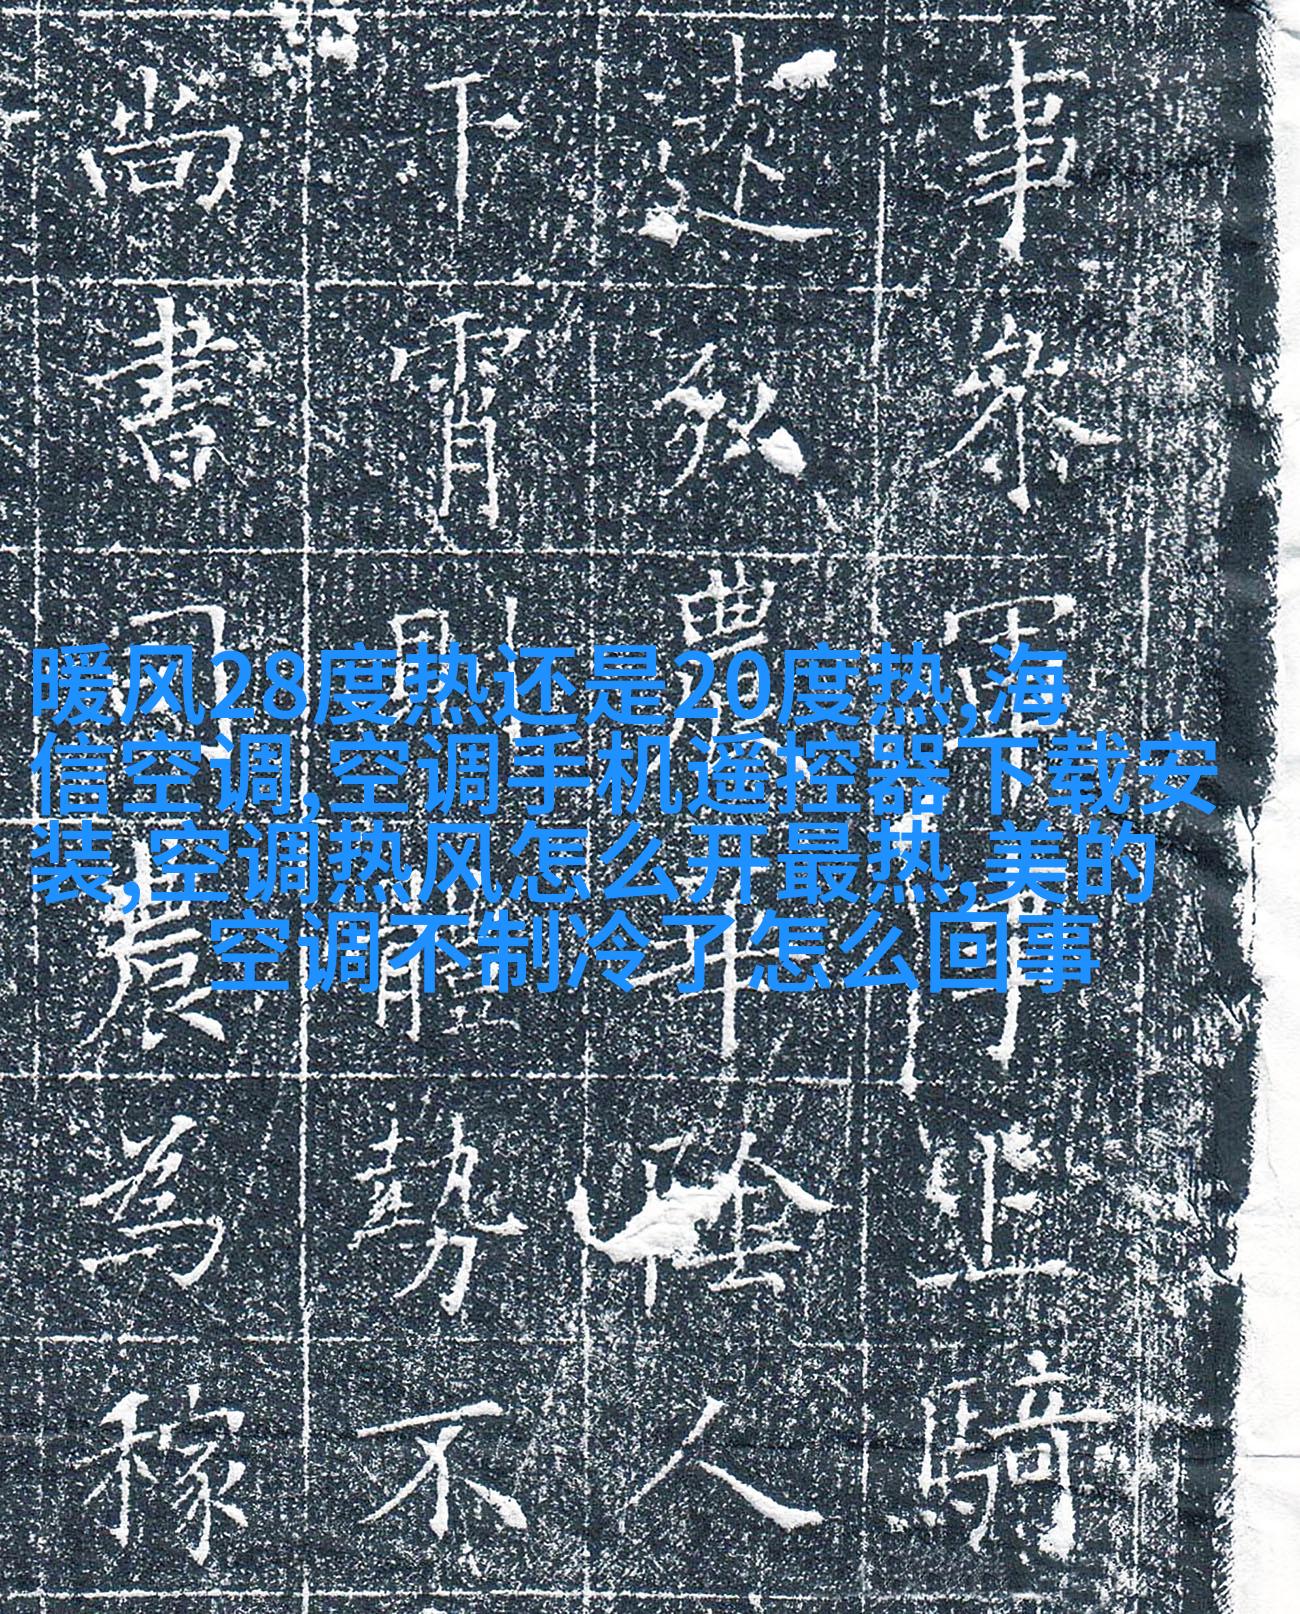 暖风28度热还是20度热,海
信空调,空调手机遥控器下载安
装,空调热风怎么开最热,美的
空调不制冷了怎么回事
事參軍事上騎
弘農華陰人
下霄體勢不
尚書司農為稼